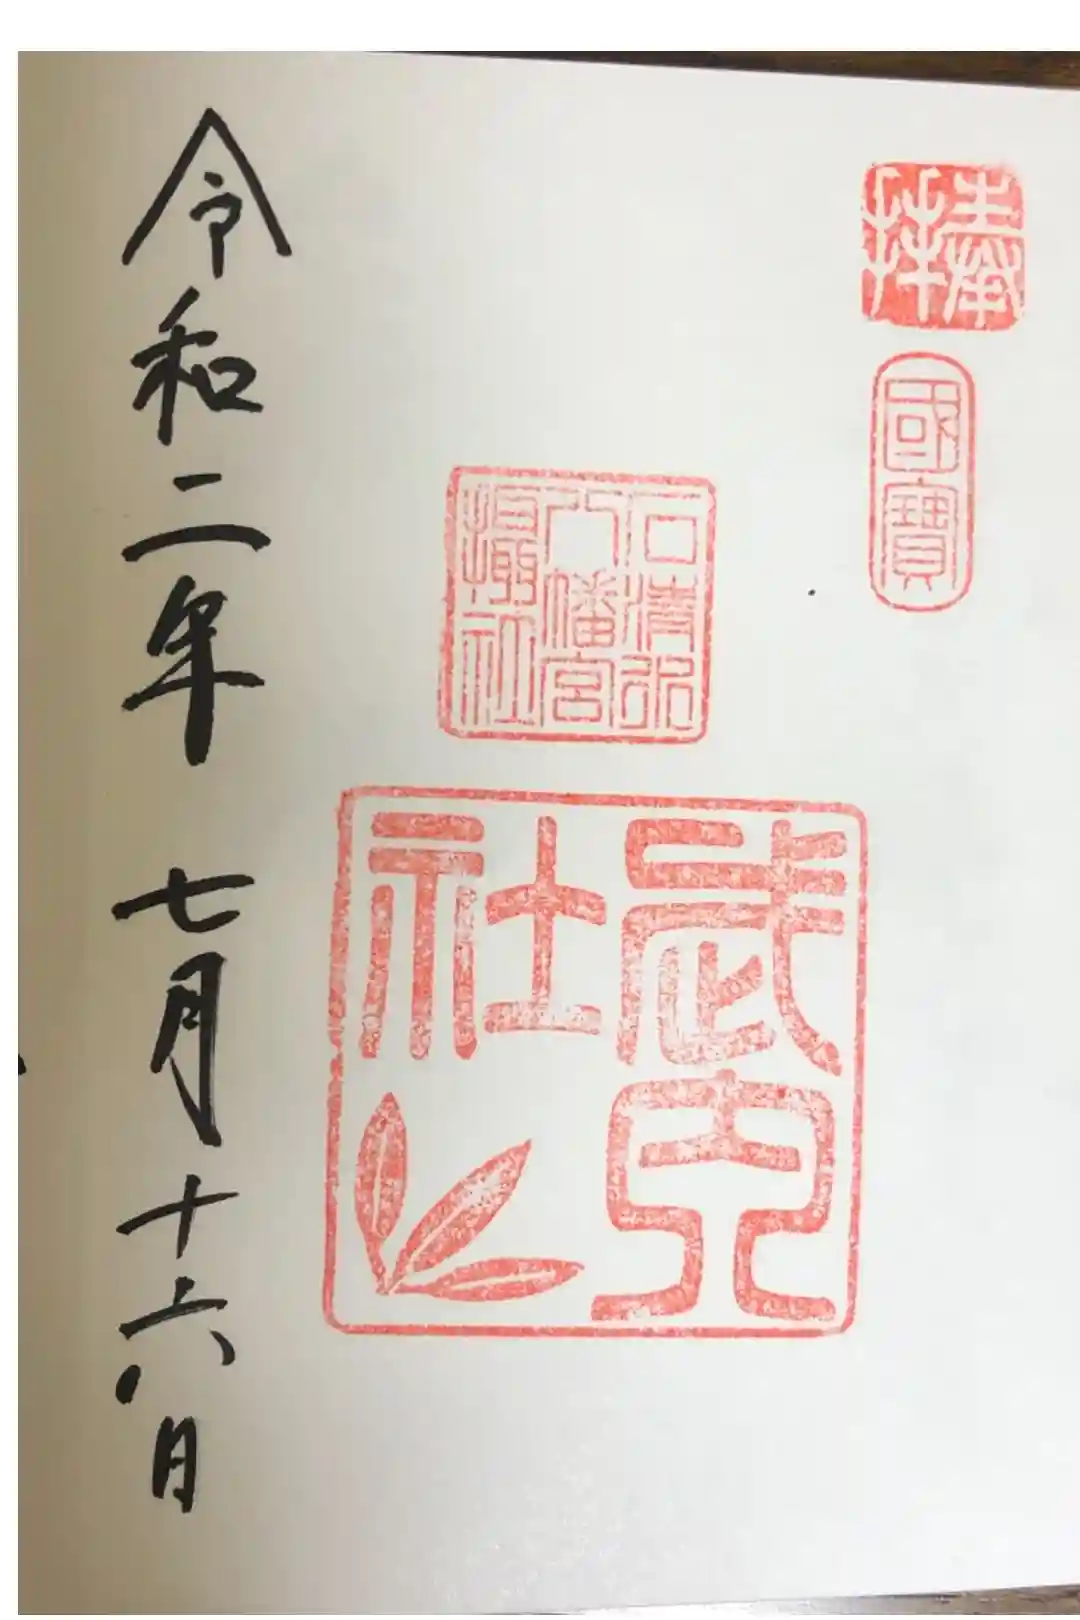 奉拜
國寶
石清水
八幡宮
攝社
武内
社
令和二年 七月十六日